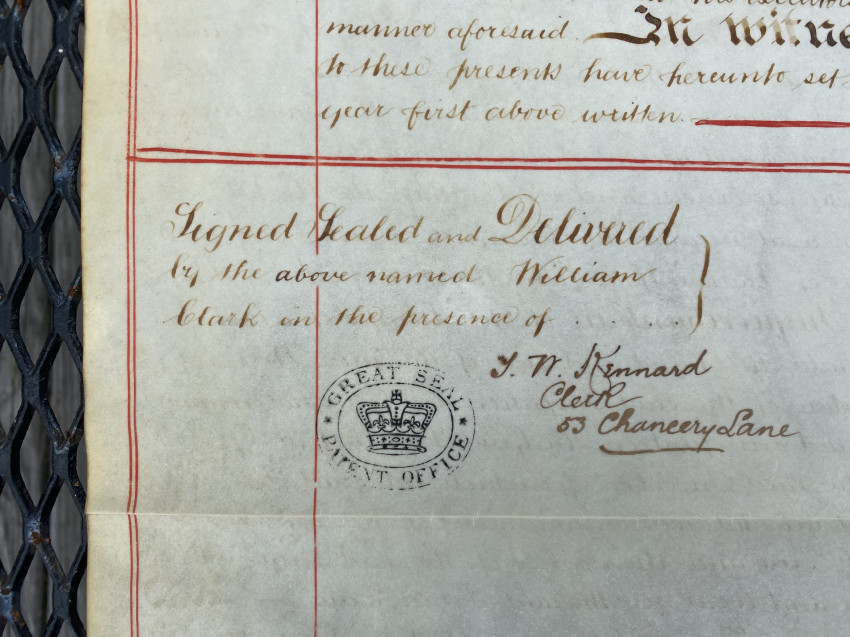 manner aforesaid. In witne
to these presents have hereunto set
year first above written.
Signed Sealed and Delivered
by the above named William
Clark in the presence of . . . .
T. W. Kennard
Clerk
53 Chancery Lane
GREAT SEAL
PATENT OFFICE